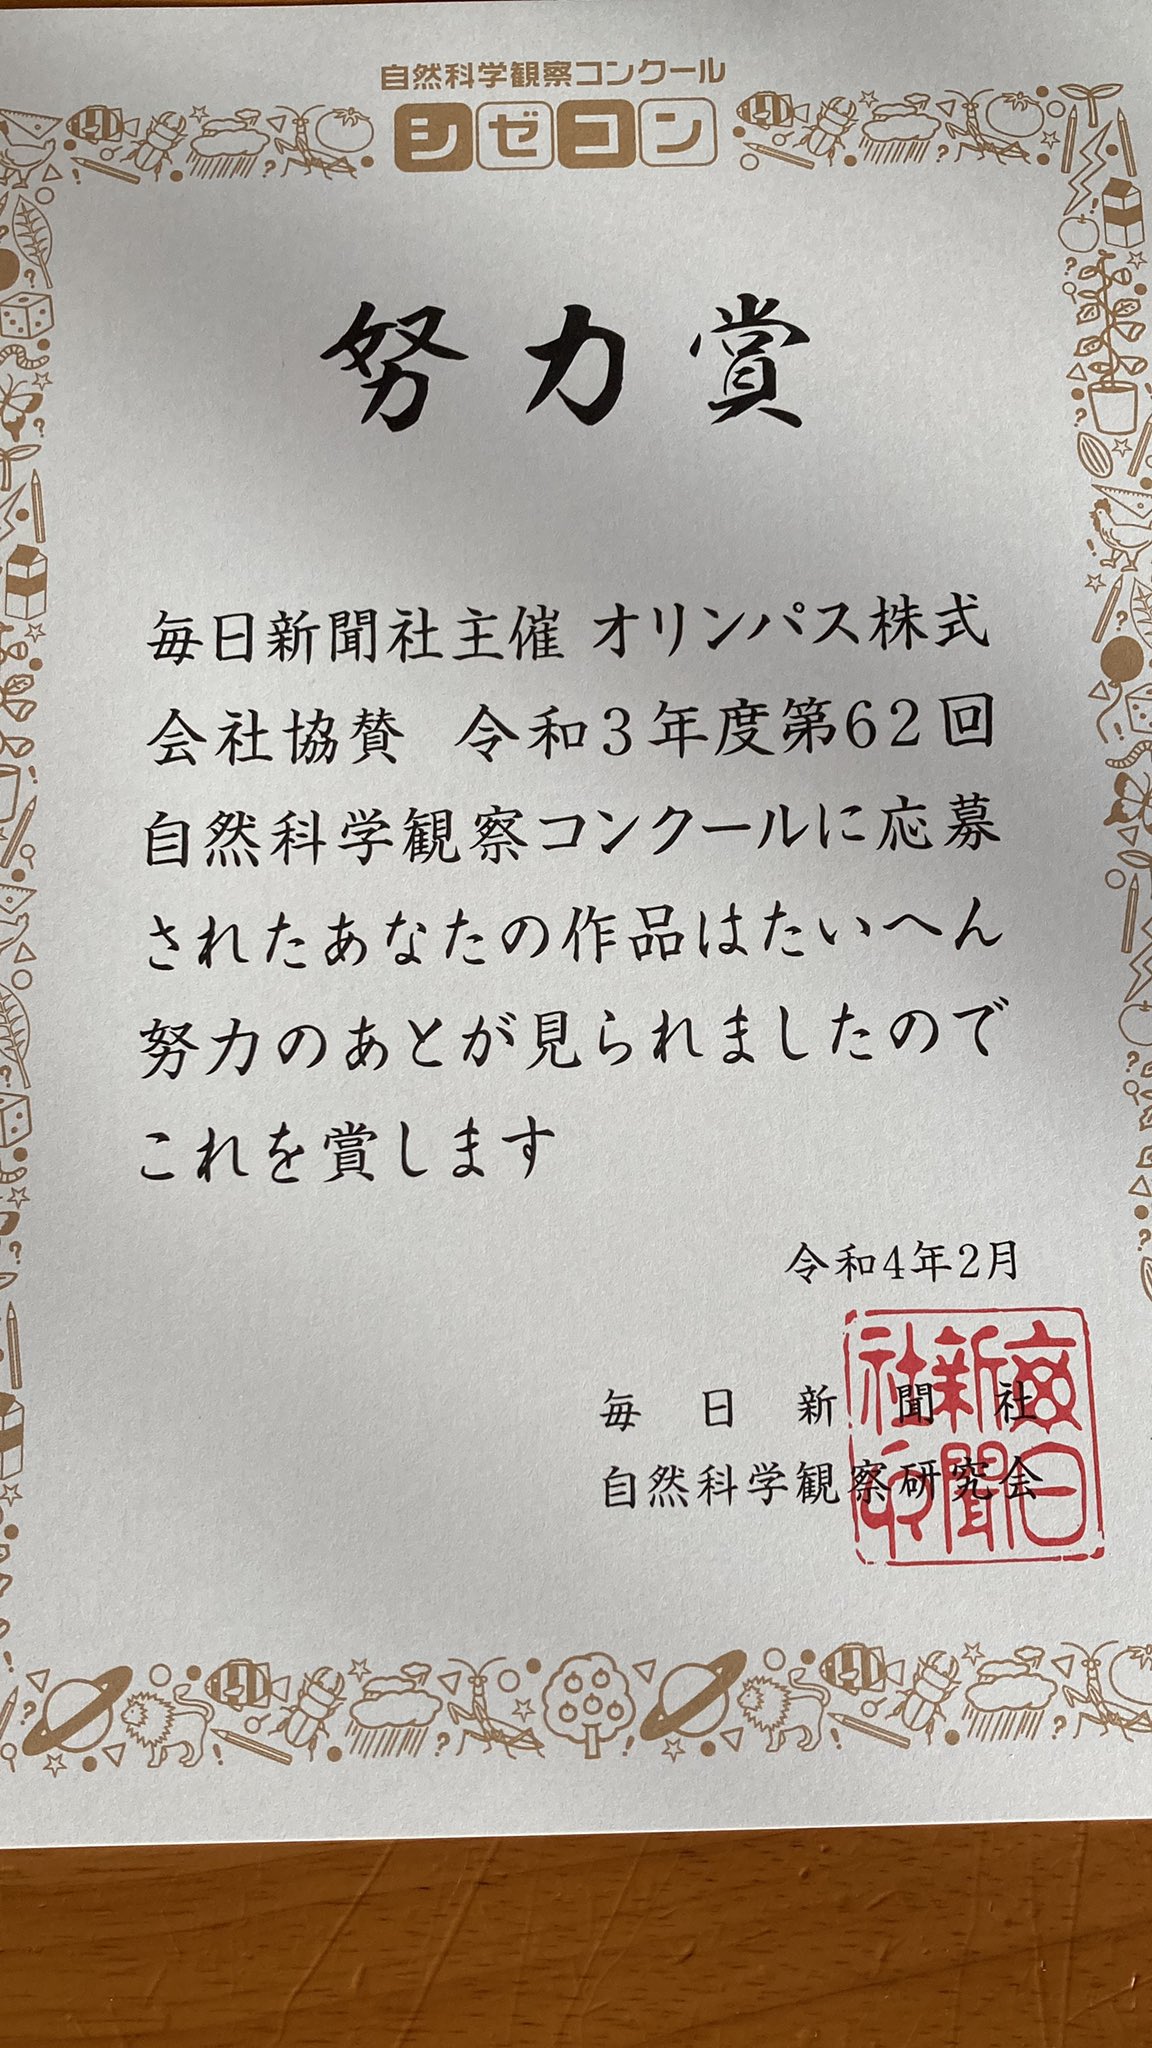 自然科学観察コンクール
シゼコン
努力賞
毎日新聞社主催 オリンパス株式
会社協賛 令和3年度第62回
自然科学観察コンクールに応募
されたあなたの作品はたいへん
努力のあとが見られましたので
これを賞します
令和4年2月
毎日新聞社
自然科学観察研究会
毎日新聞社印